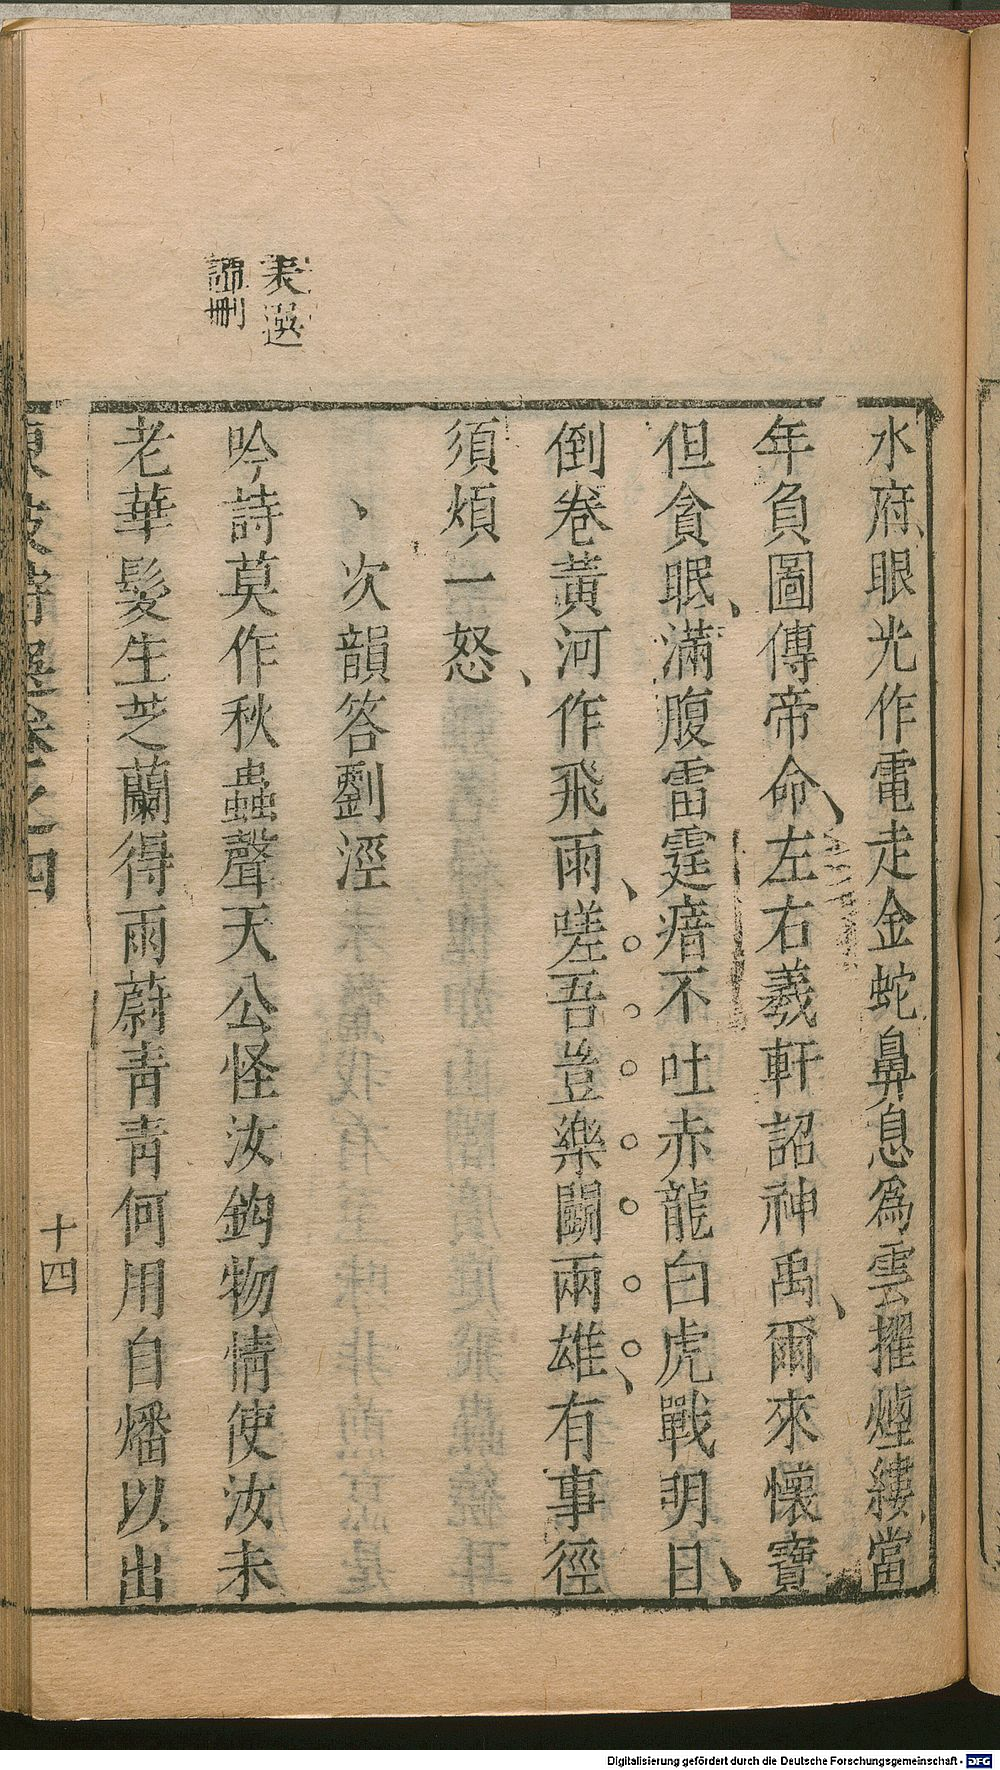 水府眼光作電走金蛇鼻息爲雲擢煙縷當
年負圖傳帝命左右羲軒詔神禹爾來懷寶
但貪眠滿腹雷霆瘖不吐赤龍白虎戰明日
倒卷黃河作飛雨嗟吾豈樂鬭兩雄有事徑
須煩一怒
次韻答劉涇
吟詩莫作秋蟲聲天公怪汝鈎物情使汝未
老華髮生芝蘭得雨蔚青青何用自燔以出
選
刪
東坡詩選卷之四
十四
Digitalisierung gefördert durch die Deutsche Forschungsgemeinschaft - DFG